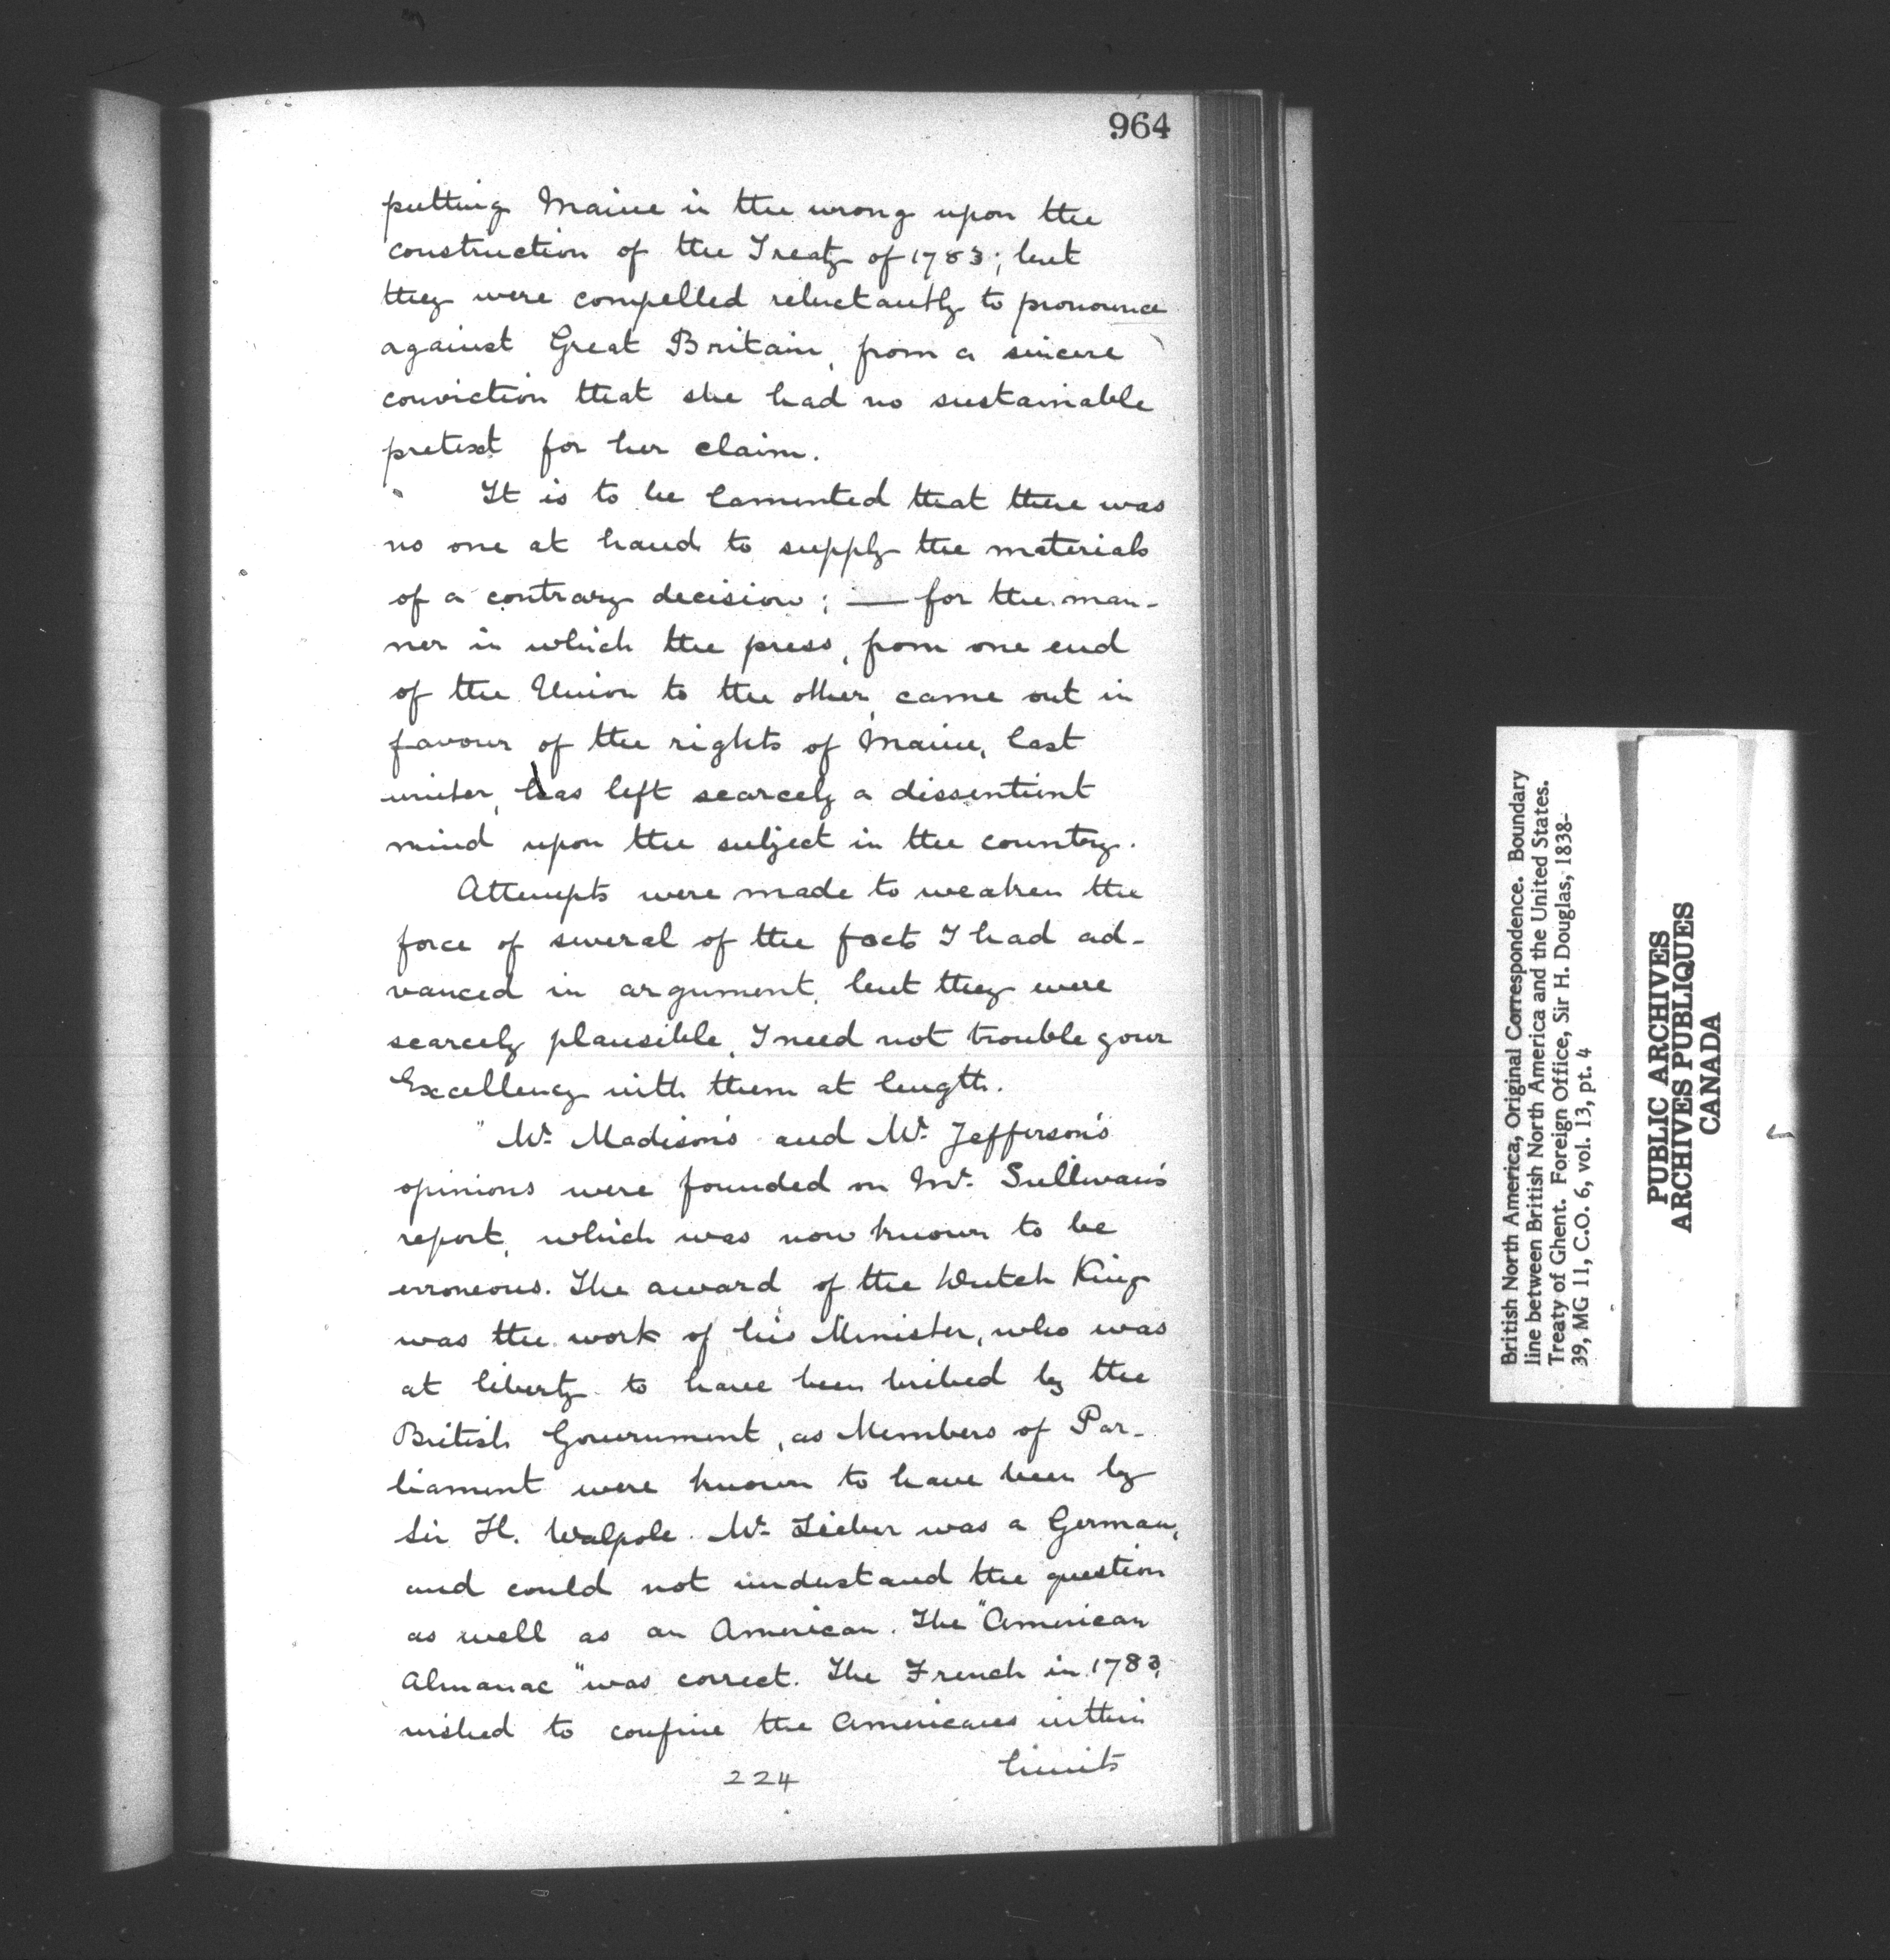 964
putting Maine in the wrong upon the
construction of the Treaty of 1783; but
they were compelled reluctantly to pronounce
against Great Britain, from a sincere
conviction that she had no sustainable
pretext for her claim.
It is to be lamented that there was
no one at hand to supply the materials
of a contrary decision; — for the man-
ner in which the press, from one end
of the Union to the other, came out in
favour of the rights of Maine, last
winter, has left scarcely a dissentient
mind upon the subject in the country.
Attempts were made to weaken the
force of several of the facts I had ad-
vanced in argument, but they were
scarcely plausible. I need not trouble your
Excellency with them at length.
"Mr. Madison's and Mr. Jefferson's
opinions were founded on Mr. Sullivan's
report, which was now known to be
erroneous. The award of the Dutch King
was the work of his Minister, who was
at liberty to have been bribed by the
British Government, as Members of Par-
liament were known to have been by
Sir H. Walpole. Mr. Lieber was a German,
and could not understand the question
as well as an American. The "American
Almanac" was correct. The French in 1783,
wished to confine the Americans within
limits
224
British North America, Original Correspondence. Boundary
line between British North America and the United States.
Treaty of Ghent. Foreign Office, Sir H. Douglas, 1838-
39, MG 11, C.O. 6, vol. 13, pt. 4
PUBLIC ARCHIVES
ARCHIVES PUBLIQUES
CANADA